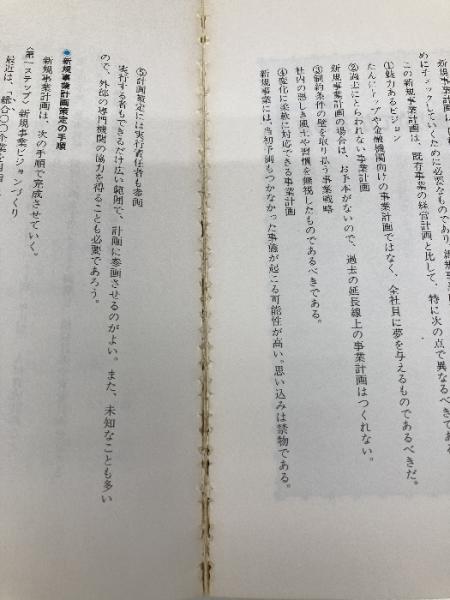 めにチェックしていくために必要なものであり、
この新規事業計画は、既存事業の経営計画と比して、特に次の点で異なるべきで
①魅力あるビジョン
たんにトップや金融機関向けの事業計画ではなく、全社員に夢を与えるものであるべきだ。
②過去にとらわれない事業計画
新規事業計画の場合は、お手本がないので、過去の延長線上の事業計画はつくれない。
③制約条件の壁を取り払う事業戦略
社内の悪しき風土や習慣を無視したものであるべきである。
④変化に柔軟に対応できる事業計画
新規事業には、当初予測もつかなかった事態が起こる可能性が高い。思い込みは禁物である。
⑤計画策定には実行責任者も参画
実行する者もできるだけ広い範囲で、計画に参画させるのがよい。また、未知なことも多い
ので、外部の専門機関の協力を得ることも必要であろう。
●新規事業計画策定の手順
新規事業計画は、次の手順で完成させていく。
〈第一ステップ〉新規事業ビジョンづくり
最近は、「総合〇〇企業を目